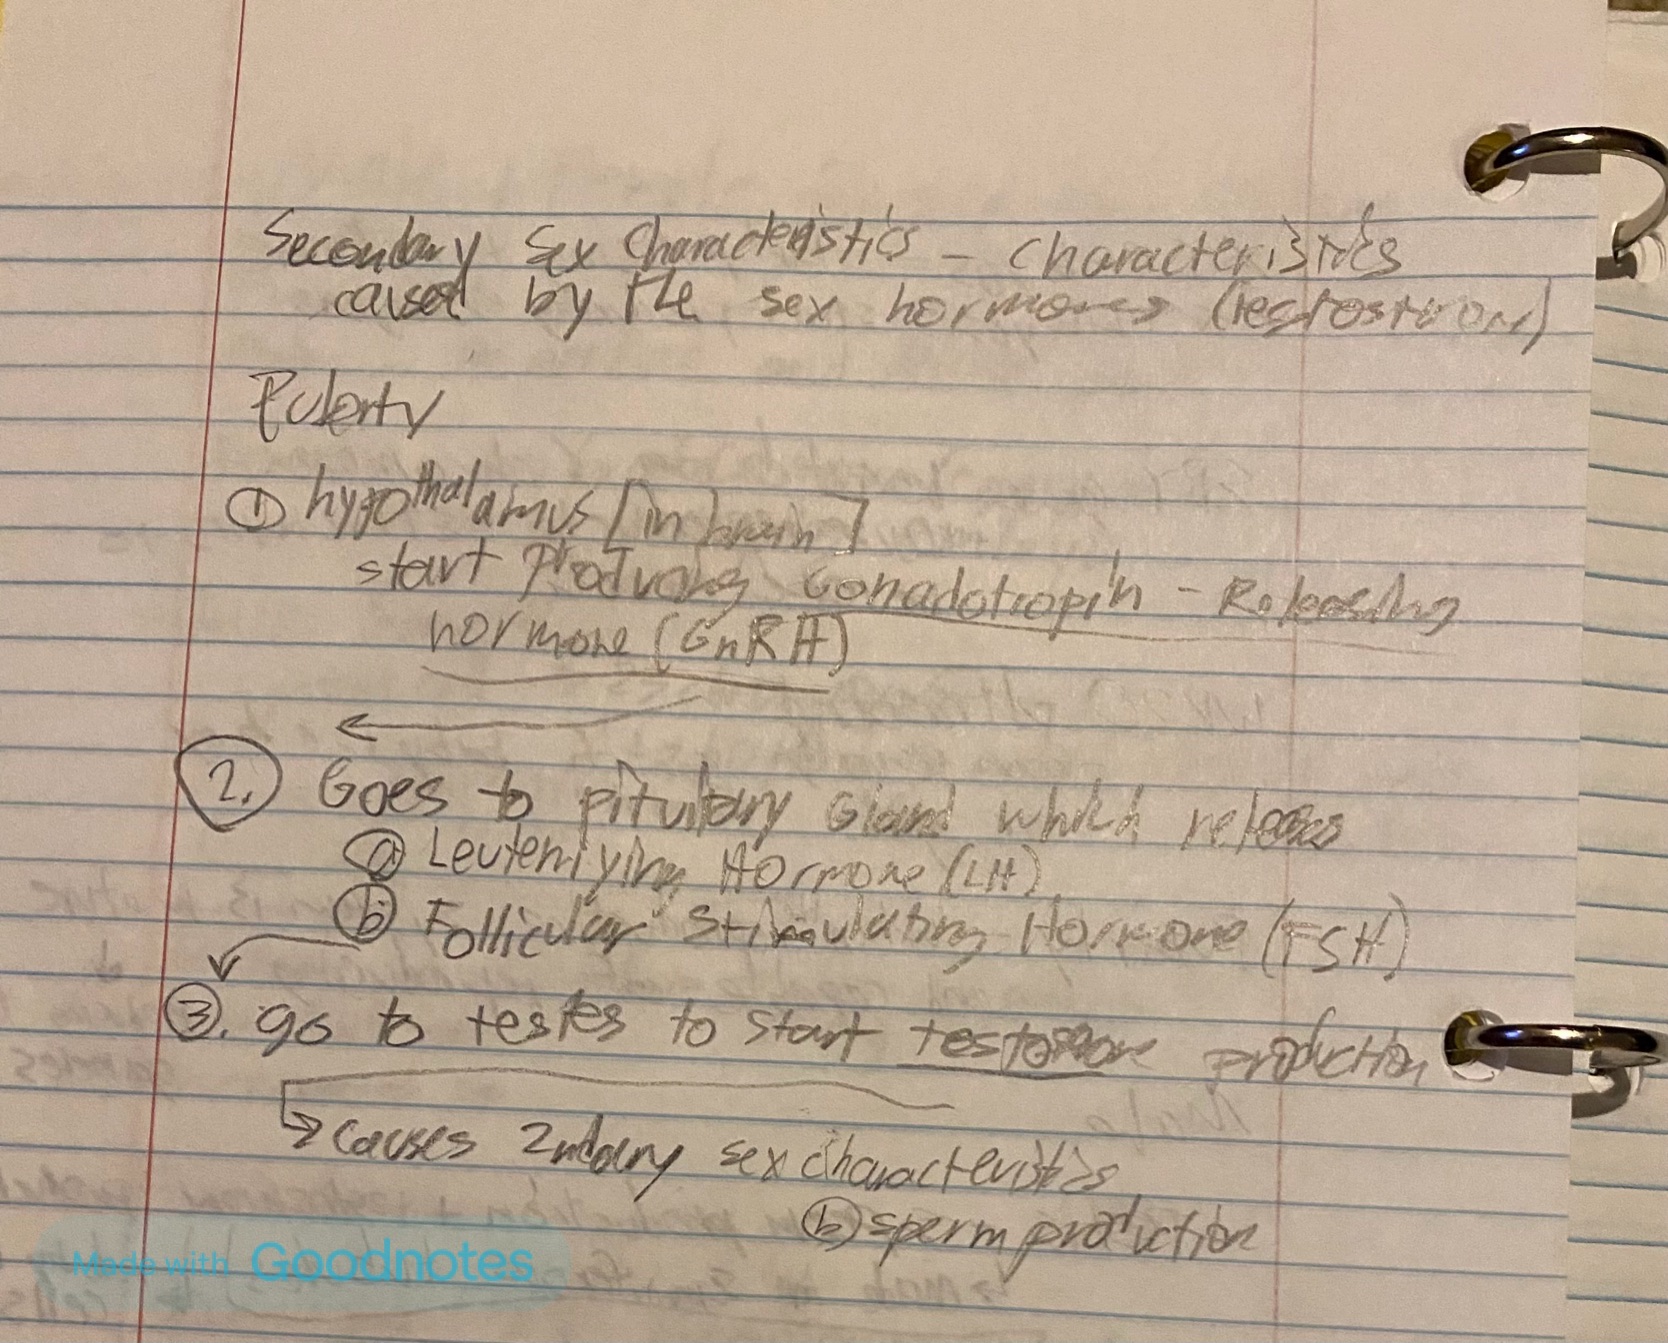 Secondary Sex Characteristics - Characteristics
caused by the sex hormones (testosteron)
Puberty
① hypothalamus [in brain]
start Producing Gonadotropin - Releasing
hormone (GnRH)
2. Goes to pituitary Gland which releases
ⓐ Leuteniying Hormone (LH)
ⓑ Follicular Stimulating Hormone (FSH)
③. go to testes to start production
↳ causes 2ndary sex characteristics
ⓑ sperm production
Made with Goodnotes